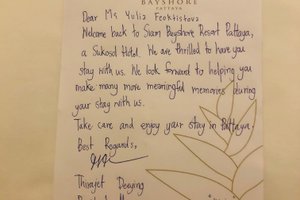 BAYSHORE
PATTAYA
Dear Ms Yulia Feoktistova
Welcome back to Siam Bayshore Resort Pattaya,
a Sukosol Hotel. We are thrilled to have you
stay with us. We look forward to helping you
make many more meaningful memories during
your stay with us.
Take care and enjoy your stay in Pattaya.
Best Regards,